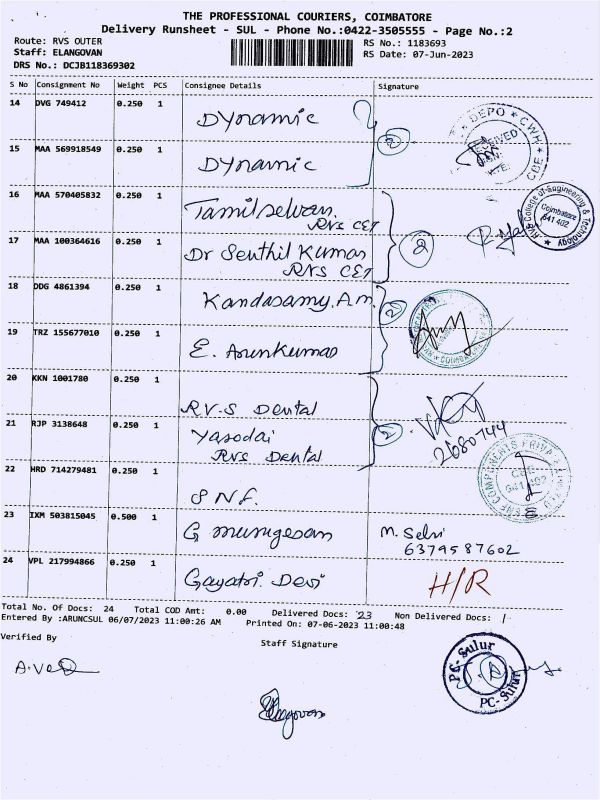 THE PROFESSIONAL COURIERS, COIMBATORE
Delivery Runsheet - SUL - Phone No.:0422-3505555 - Page No.:2
Route: RVS OUTER
RS No.: 1183693
Staff: ELANGOVAN
RS Date: 07-Jun-2023
DRS No.: DCJB118369302
S No Consignment No Weight PCS Consignee Details Signature
14 DVG 749412 0.250 1 Dynamic
15 MAA 569918549 0.250 1 Dynamic 2
DEPO * CWH * CBE
RECEIVED
16 MAA 570405832 0.250 1 Tamilselvan
RVS CET
RVS College of Engineering & Technology
Coimbatore
641 402
17 MAA 100364616 0.250 1 Dr Senthil Kumar 2
RVS CET
18 DDG 4861394 0.250 1 Kandasamy. A.m. 2
19 TRZ 155677010 0.250 1 E. Arunkumar
20 KKN 1001780 0.250 1 R.V.S Dental
21 RJP 3138648 0.250 1 Yasodai 2
RVS Dental
2680744
22 HRD 714279481 0.250 1 SNF.
23 IXM 503815045 0.500 1 G murugesan M. Selvi
6379587602
24 VPL 217994866 0.250 1 Gayatri. Devi H/R
Total No. Of Docs: 24 Total COD Amt: 0.00 Delivered Docs: 23 Non Delivered Docs: 1
Entered By :ARUNCSUL 06/07/2023 11:00:26 AM Printed On: 07-06-2023 11:00:48
Verified By
Staff Signature
PC-Sulur
PC-Sulur
Elangovan